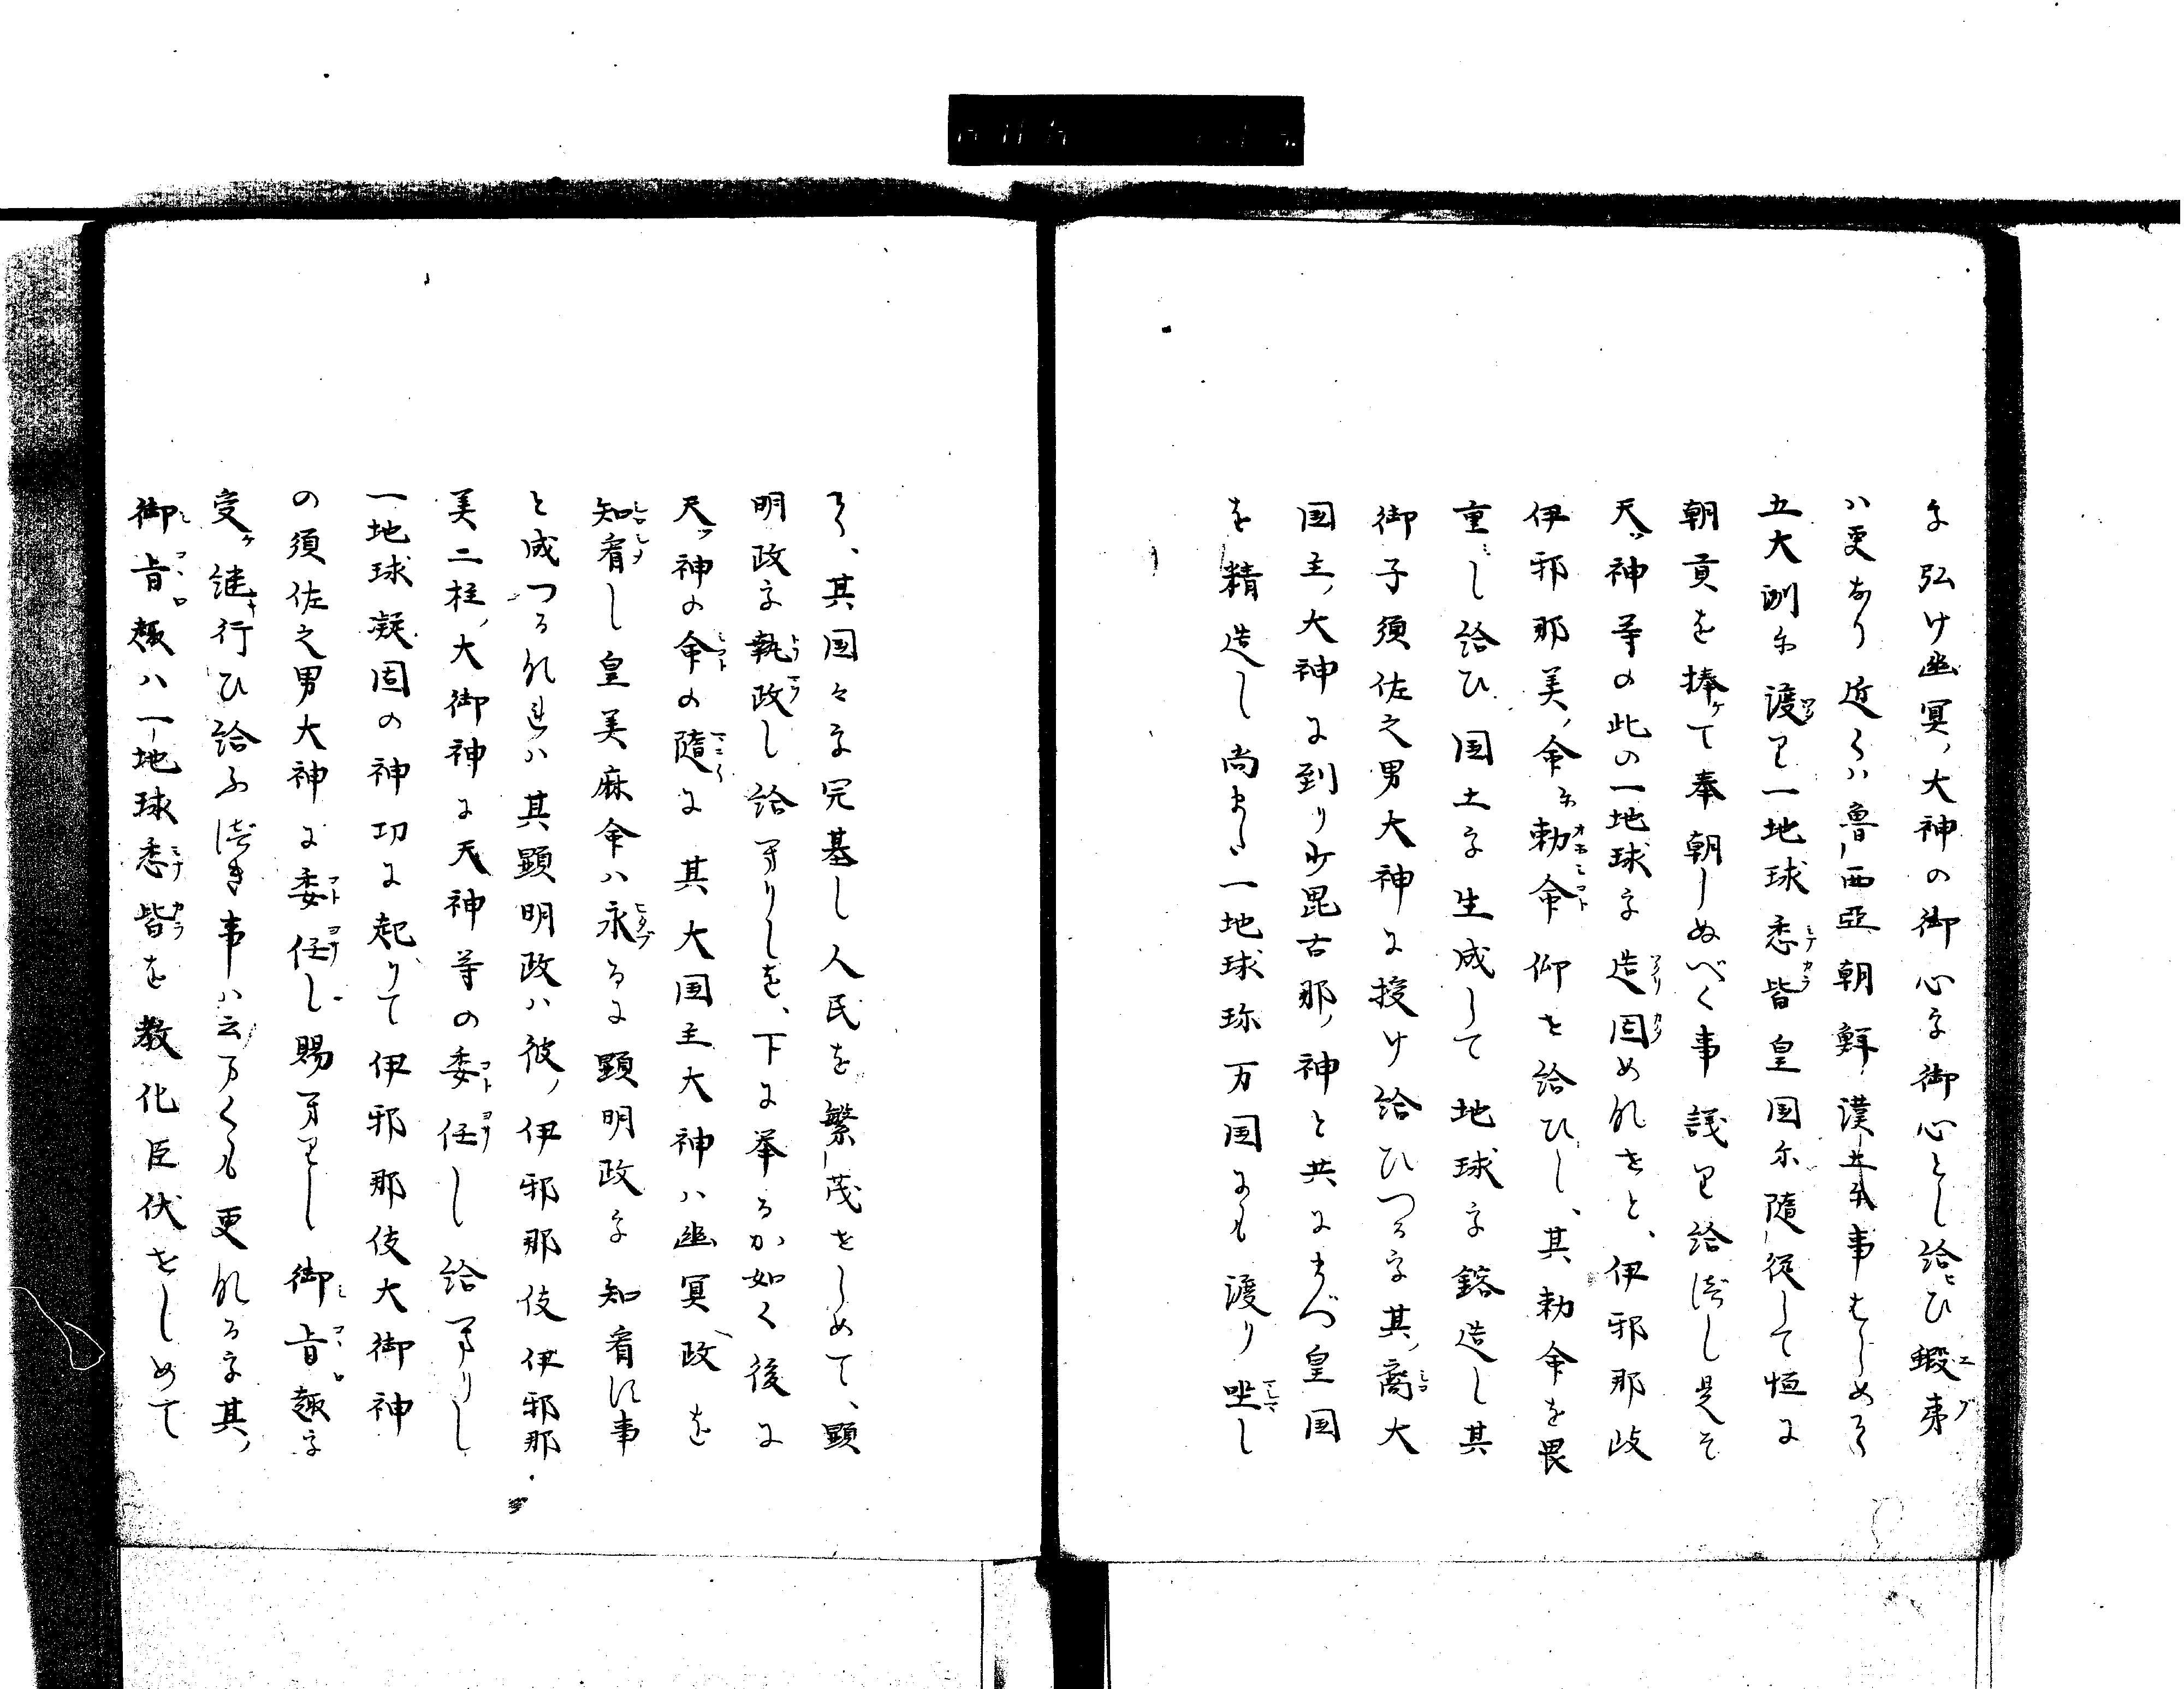 に弘け幽冥ノ大神の御心を御心とし給ひ蝦夷
ハ更なり近くハ魯西亜朝鮮漢土事をしめて
五大洲に渡り一地球悉皆皇国に随従して恒に
朝貢を捧て奉朝しぬべく事議り給ふ見そ
天ッ神等の此の一地球を造固めなせと、伊邪那岐
伊邪那美ノ命に勅命仰を給ひし、其勅命を畏
重し給ひ国土を生成して地球を鎔造し其
御子須佐之男大神に授け給ひつるを其ノ裔大
国主ノ大神に到り少毘古那ノ神と共にまづ皇国
を精造し尚また一地球珎万国にも渡り坐し
て、其国々を完基し人民を繁茂せしめて、顕
明政を執政し給ありしを、下に挙るか如く後に
天ッ神の命の随に其大国主大神ハ幽冥政を
知看し皇美麻命ハ永るに顕明政を知看に事
と成つるなれハ其顕明政ハ彼ノ伊邪那伎伊邪那
美二柱ノ大御神に天神等の委任し給ありし
一地球凝固の神功に起りて伊邪那伎大御神
の須佐之男大神に委任し賜ありし御旨趣を
受ケ継行ひ給ふ可き事ハ云まくも更なるを其ノ
御旨趣ハ一地球悉皆を教化臣伏せしめて